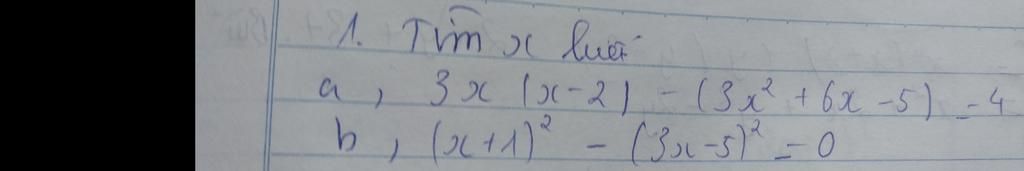 1. Tìm x biết
a, 3x (x-2) - (3x² + 6x - 5) = 4
b, (x+1)² - (3x-5)² = 0